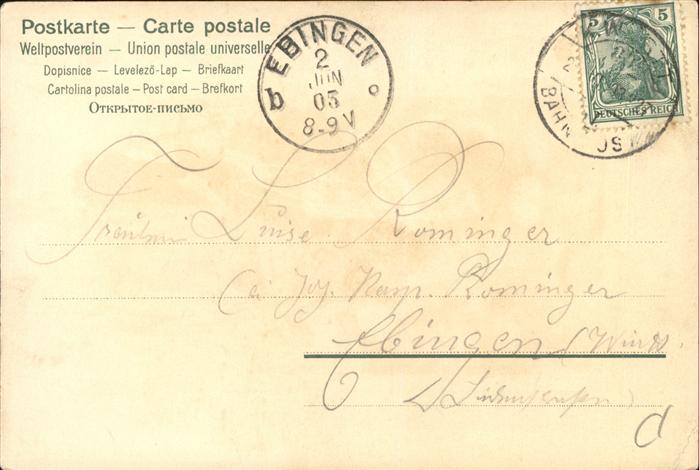 Postkarte — Carte postale
Weltpostverein — Union postale universelle
Dopisnice — Levelező-Lap — Briefkaart
Cartolina postale — Post card — Brefkort
Открытое-письмо
EBINGEN
2
JUN
05
8-9V
b
5 5
DEUTSCHES REICH
BAHN
Fräulein Luise Rominger
Rominger
Ebingen
d